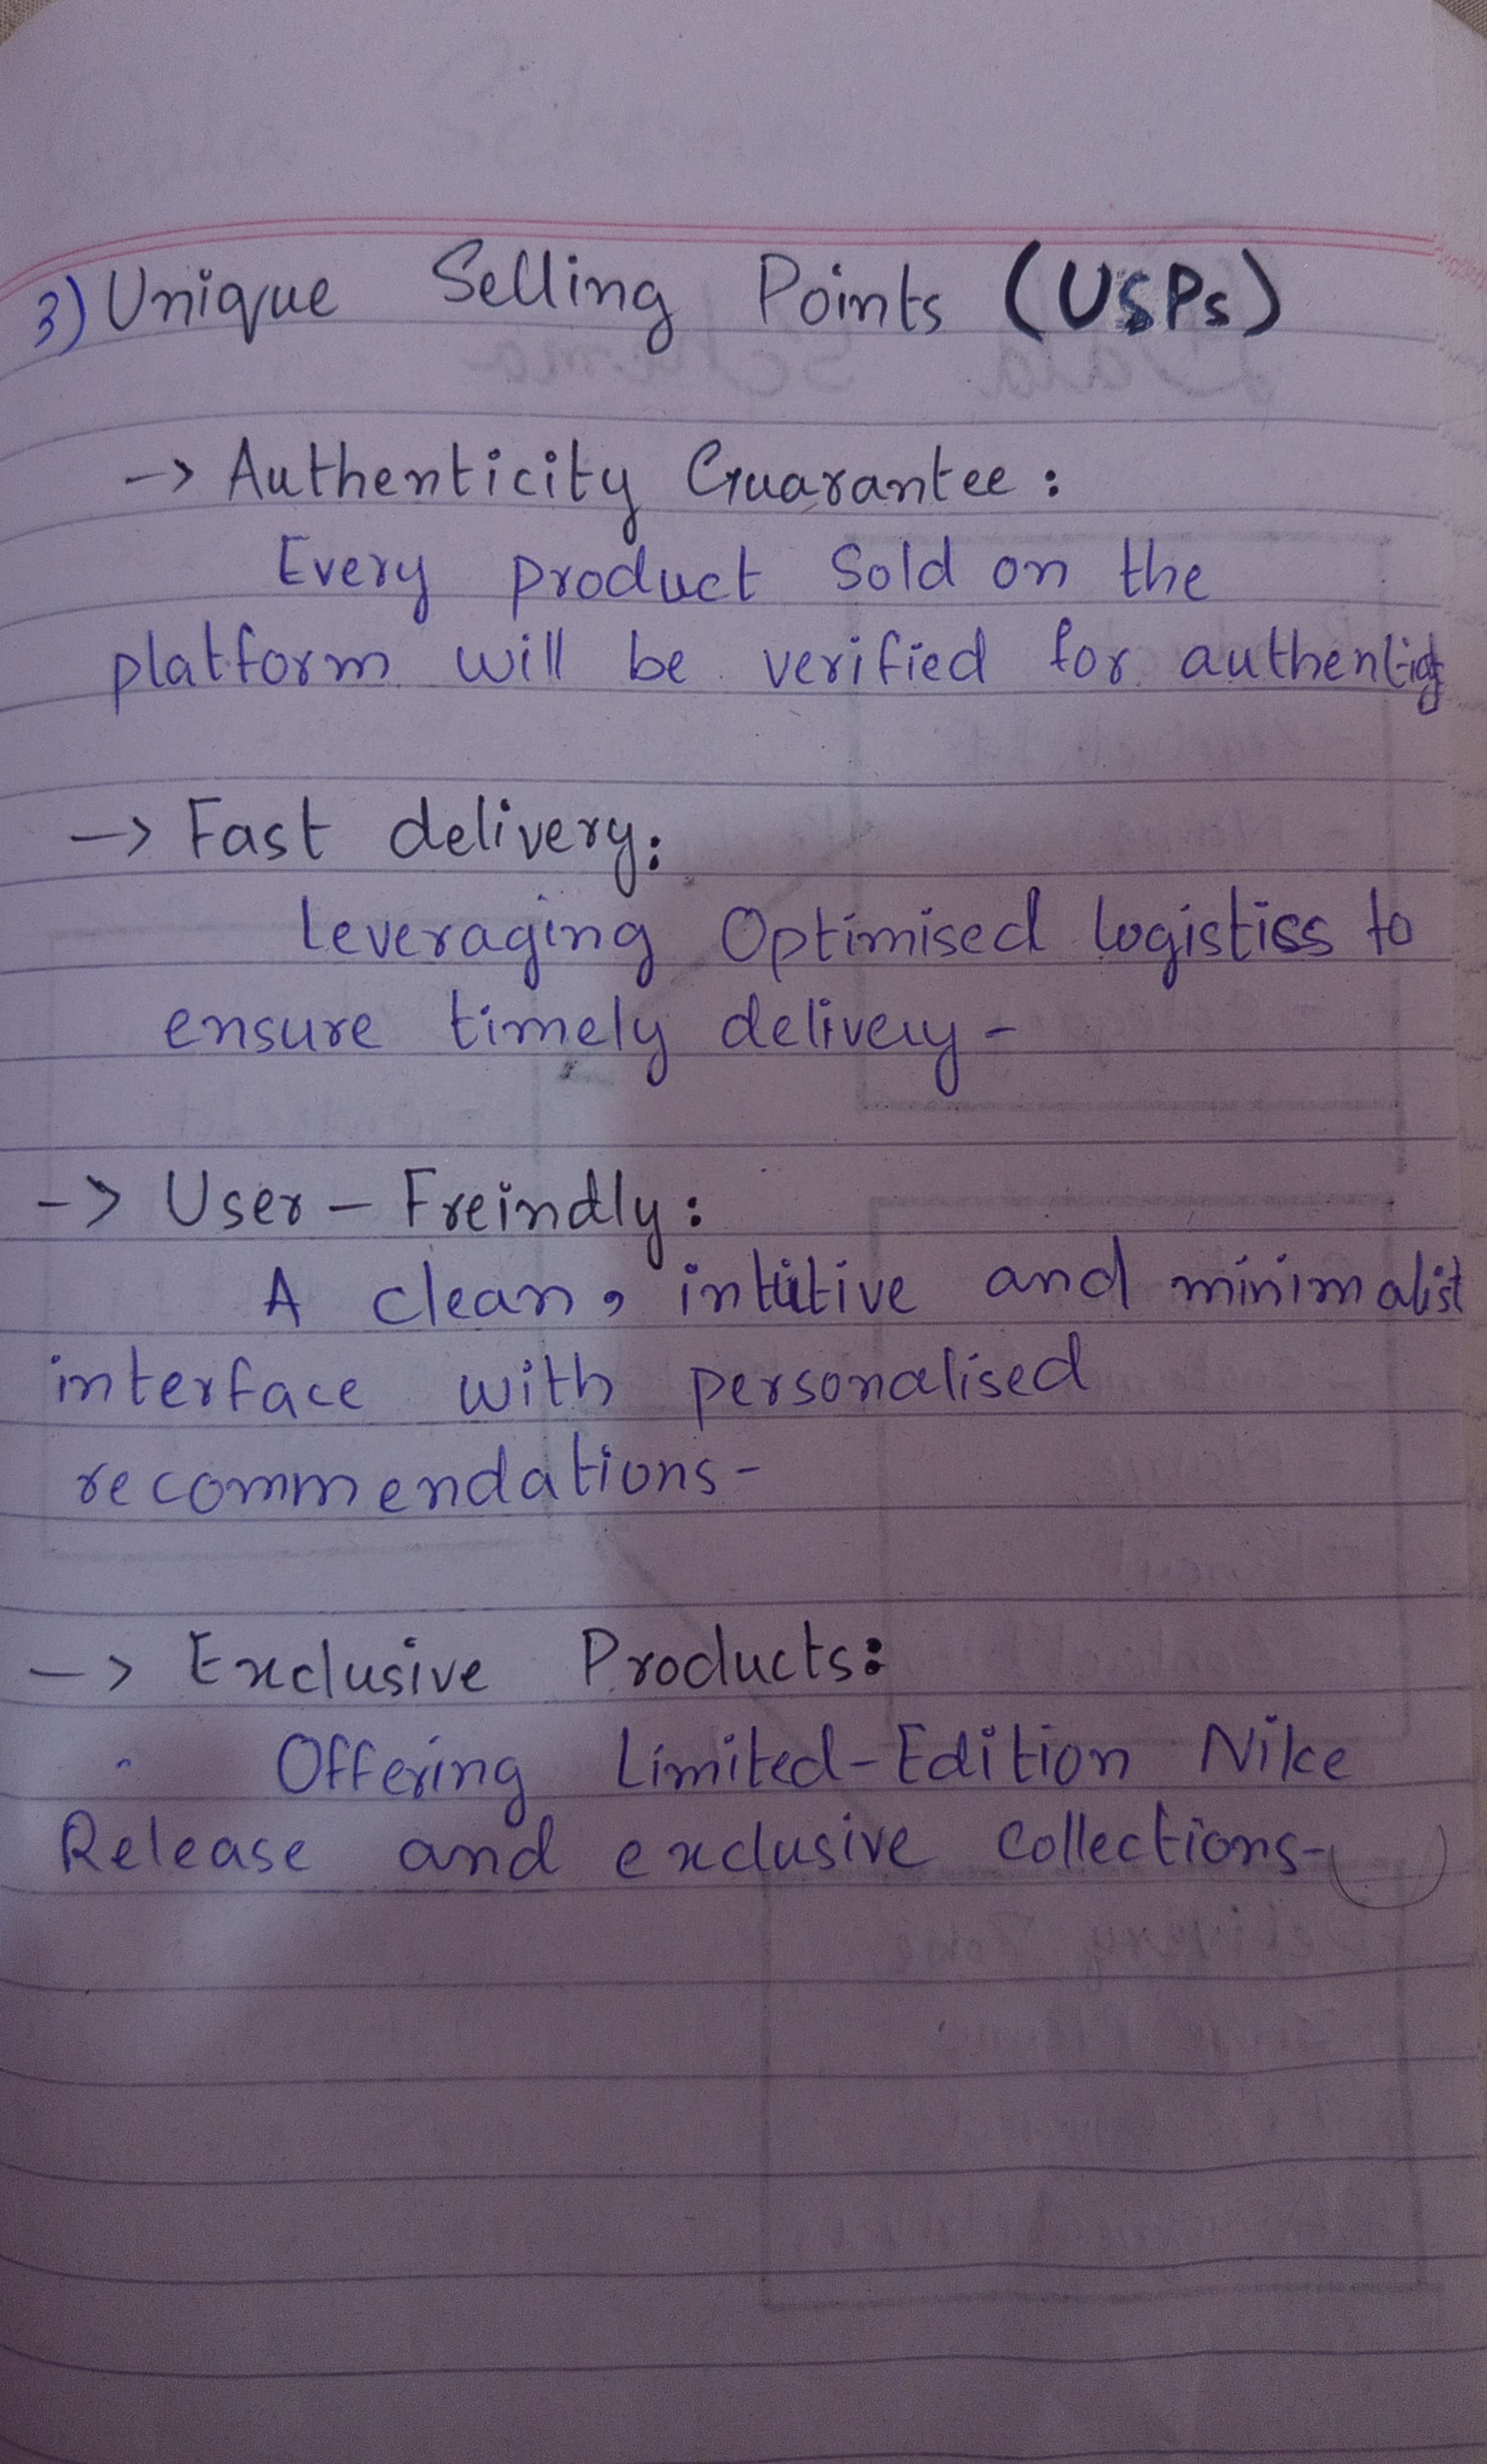 3) Unique Selling Points (USPs)
-> Authenticity Guarantee :
Every product Sold on the
platform will be verified for
-> Fast delivery:
leveraging Optimised logistics to
ensure timely delivery -
-> User - Freindly :
A clean, intuitive and minimalist
interface with personalised
recommendations -
-> Exclusive Products:
Offering Limited-Edition Nike
Release and exclusive Collections-
Data Schema